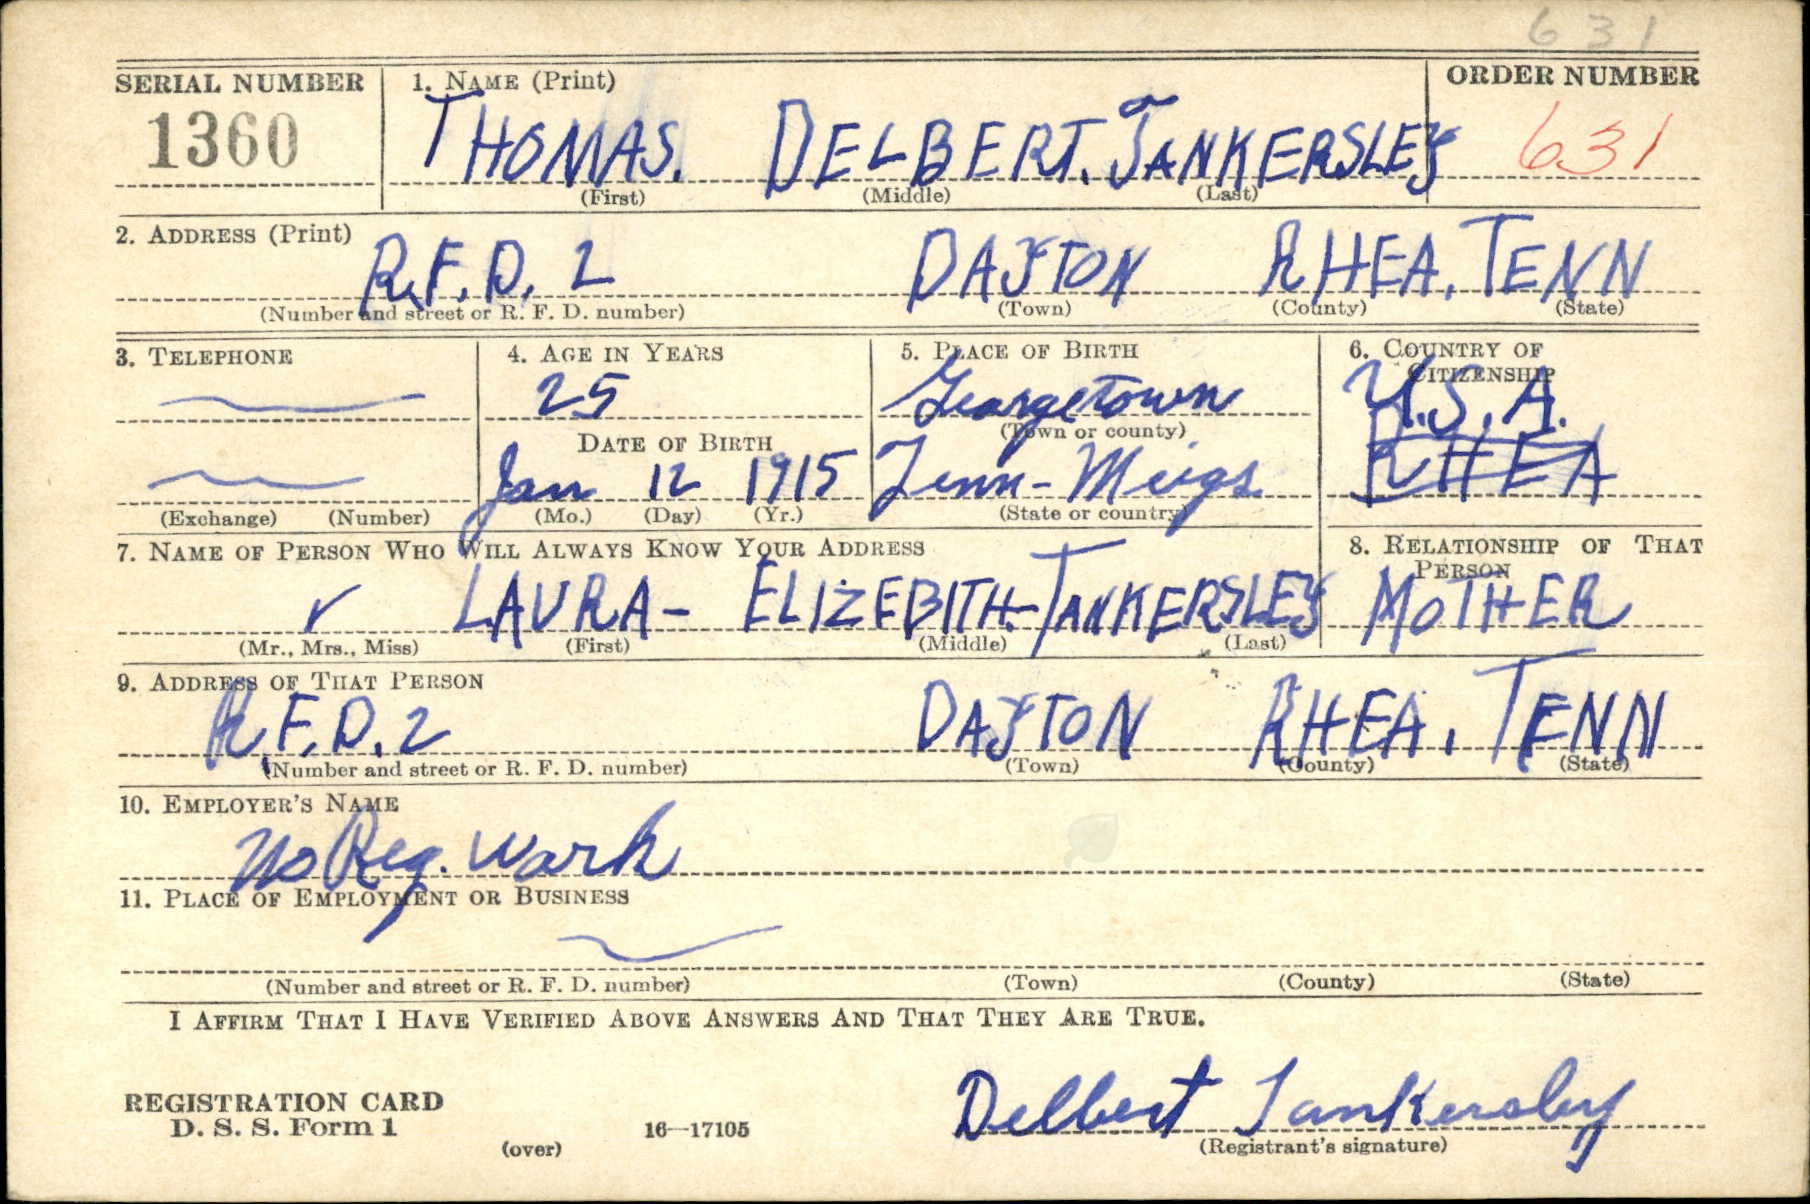 631
SERIAL NUMBER 1. NAME (Print) ORDER NUMBER
1360 THOMAS. DELBERT. TANKERSLEY 631
(First) (Middle) (Last)
2. ADDRESS (Print)
R.F.D. 2 DAYTON RHEA. TENN
(Number and street or R. F. D. number) (Town) (County) (State)
3. TELEPHONE 4. AGE IN YEARS 5. PLACE OF BIRTH 6. COUNTRY OF
CITIZENSHIP
25 Georgetown U.S.A.
(Town or county)
DATE OF BIRTH
Jan 12 1915 Tenn - Meigs RHEA
(Exchange) (Number) (Mo.) (Day) (Yr.) (State or country)
7. NAME OF PERSON WHO WILL ALWAYS KNOW YOUR ADDRESS 8. RELATIONSHIP OF THAT
PERSON
LAURA - ELIZEBITH - TANKERSLEY MOTHER
(Mr., Mrs., Miss) (First) (Middle) (Last)
9. ADDRESS OF THAT PERSON
R.F.D. 2 DAYTON RHEA. TENN
(Number and street or R. F. D. number) (Town) (County) (State)
10. EMPLOYER'S NAME
No Reg. Work
11. PLACE OF EMPLOYMENT OR BUSINESS
(Number and street or R. F. D. number) (Town) (County) (State)
I AFFIRM THAT I HAVE VERIFIED ABOVE ANSWERS AND THAT THEY ARE TRUE.
Delbert Tankersley
REGISTRATION CARD
D. S. S. Form 1 16—17105 (Registrant's signature)
(over)